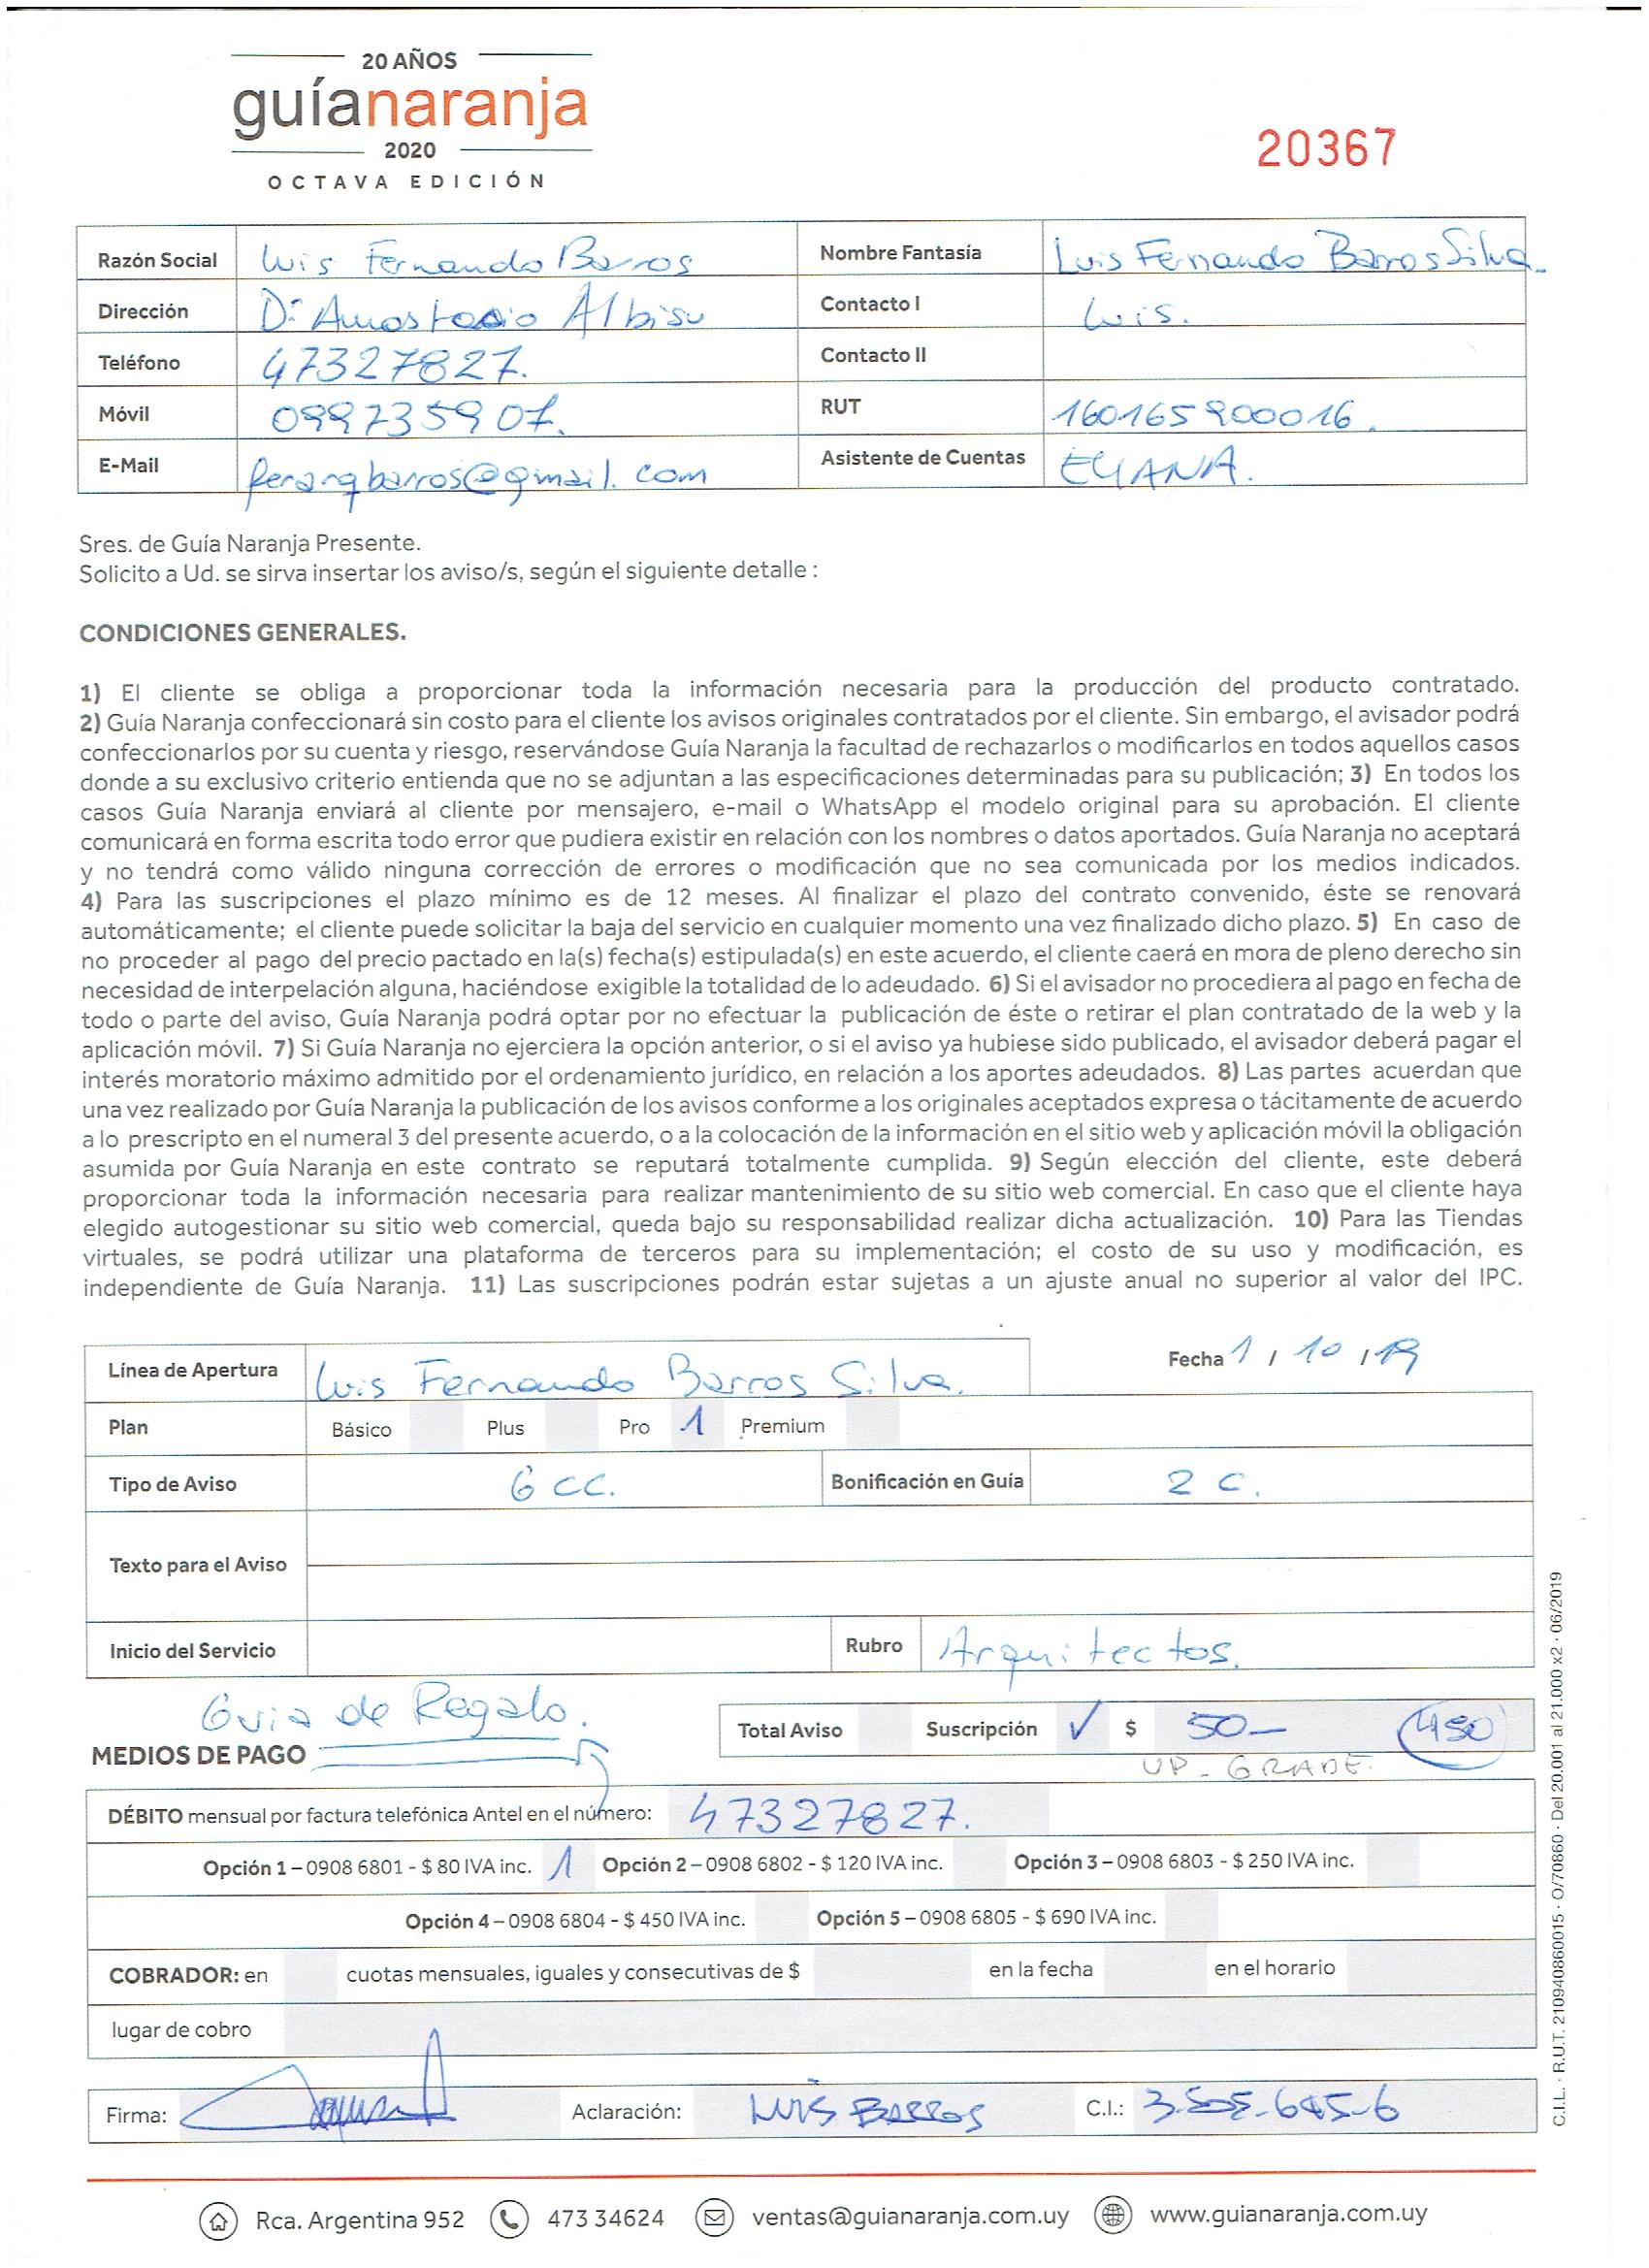 20 AÑOS
guíanaranja
2020
OCTAVA EDICIÓN
20367
Razón Social Luis Fernando Barros Nombre Fantasía Luis Fernando Barros Silva.
Dirección Albisu Contacto I Luis.
Teléfono 47327827. Contacto II
Móvil 099735907. RUT 160165900016.
E-Mail ferarqbarros@gmail.com Asistente de Cuentas
Sres. de Guía Naranja Presente.
Solicito a Ud. se sirva insertar los aviso/s, según el siguiente detalle :
CONDICIONES GENERALES.
1) El cliente se obliga a proporcionar toda la información necesaria para la producción del producto contratado.
2) Guía Naranja confeccionará sin costo para el cliente los avisos originales contratados por el cliente. Sin embargo, el avisador podrá
confeccionarlos por su cuenta y riesgo, reservándose Guía Naranja la facultad de rechazarlos o modificarlos en todos aquellos casos
donde a su exclusivo criterio entienda que no se adjuntan a las especificaciones determinadas para su publicación; 3) En todos los
casos Guía Naranja enviará al cliente por mensajero, e-mail o WhatsApp el modelo original para su aprobación. El cliente
comunicará en forma escrita todo error que pudiera existir en relación con los nombres o datos aportados. Guía Naranja no aceptará
y no tendrá como válido ninguna corrección de errores o modificación que no sea comunicada por los medios indicados.
4) Para las suscripciones el plazo mínimo es de 12 meses. Al finalizar el plazo del contrato convenido, éste se renovará
automáticamente; el cliente puede solicitar la baja del servicio en cualquier momento una vez finalizado dicho plazo. 5) En caso de
no proceder al pago del precio pactado en la(s) fecha(s) estipulada(s) en este acuerdo, el cliente caerá en mora de pleno derecho sin
necesidad de interpelación alguna, haciéndose exigible la totalidad de lo adeudado. 6) Si el avisador no procediera al pago en fecha de
todo o parte del aviso, Guía Naranja podrá optar por no efectuar la publicación de éste o retirar el plan contratado de la web y la
aplicación móvil. 7) Si Guía Naranja no ejerciera la opción anterior, o si el aviso ya hubiese sido publicado, el avisador deberá pagar el
interés moratorio máximo admitido por el ordenamiento jurídico, en relación a los aportes adeudados. 8) Las partes acuerdan que
una vez realizado por Guía Naranja la publicación de los avisos conforme a los originales aceptados expresa o tácitamente de acuerdo
a lo prescripto en el numeral 3 del presente acuerdo, o a la colocación de la información en el sitio web y aplicación móvil la obligación
asumida por Guía Naranja en este contrato se reputará totalmente cumplida. 9) Según elección del cliente, este deberá
proporcionar toda la información necesaria para realizar mantenimiento de su sitio web comercial. En caso que el cliente haya
elegido autogestionar su sitio web comercial, queda bajo su responsabilidad realizar dicha actualización. 10) Para las Tiendas
virtuales, se podrá utilizar una plataforma de terceros para su implementación; el costo de su uso y modificación, es
independiente de Guía Naranja. 11) Las suscripciones podrán estar sujetas a un ajuste anual no superior al valor del IPC.
Línea de Apertura Luis Fernando Barros Silva. Fecha 1 / 10 / 19
Plan Básico Plus Pro 1 Premium
Tipo de Aviso 6 CC. Bonificación en Guía 2 C.
Texto para el Aviso
Inicio del Servicio Rubro Arquitectos.
Guia de Regalo.
Total Aviso Suscripción ✓ $ 50- 450
MEDIOS DE PAGO
UP-GRADE.
DÉBITO mensual por factura telefónica Antel en el número: 47327827.
Opción 1 – 0908 6801 - $ 80 IVA inc. 1 Opción 2 – 0908 6802 - $ 120 IVA inc. Opción 3 – 0908 6803 - $ 250 IVA inc.
Opción 4 – 0908 6804 - $ 450 IVA inc. Opción 5 – 0908 6805 - $ 690 IVA inc.
COBRADOR: en cuotas mensuales, iguales y consecutivas de $ en la fecha en el horario
lugar de cobro
Firma: Aclaración: LUIS BARROS C.I.:
Rca. Argentina 952 473 34624 ventas@guianaranja.com.uy www.guianaranja.com.uy
C.I.L. · R.U.T. 210940860015 · O/70860 · Del 20.001 al 21.000 x2 · 06/2019